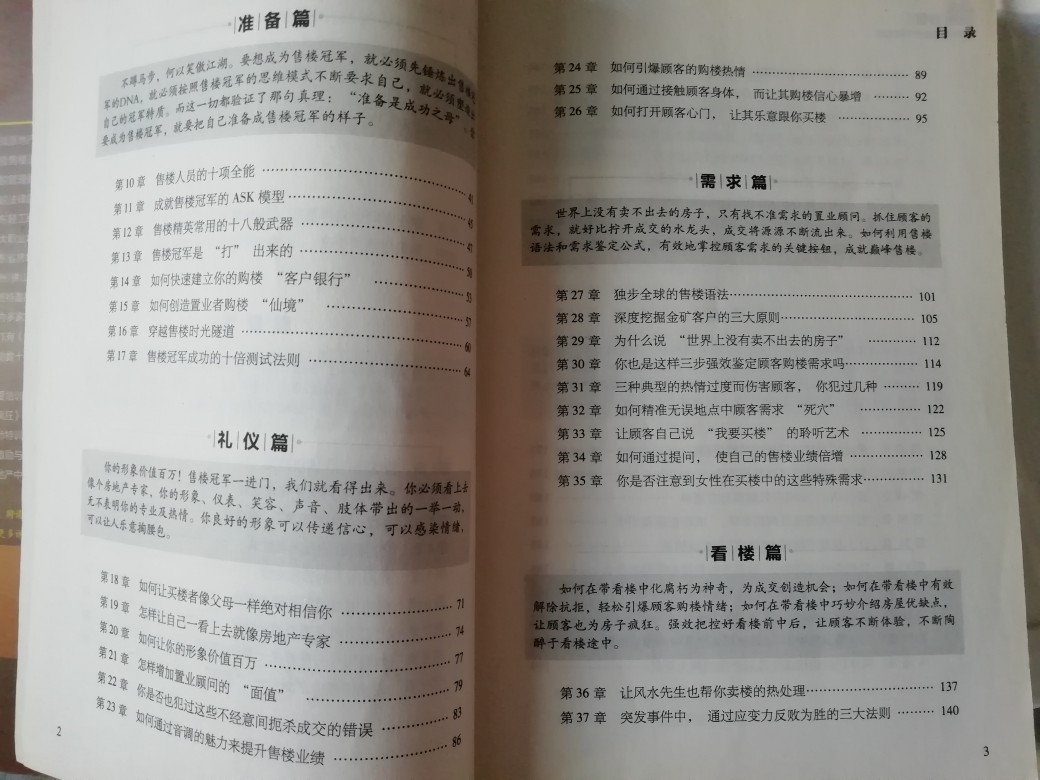 准备篇
不蹲马步，何以笑傲江湖。要想成为售楼冠军，就必须先锤炼出售楼冠
军的DNA，就必须按照售楼冠军的思维模式不断要求自己，就必须
自己的冠军特质。而这一切都验证了那句真理：“准备是成功之母”。
要成为售楼冠军，就要把自己准备成售楼冠军的样子。
第10章 售楼人员的十项全能 …… 41
第11章 成就售楼冠军的ASK模型 …… 45
第12章 售楼精英常用的十八般武器 …… 47
第13章 售楼冠军是“打”出来的 …… 50
第14章 如何快速建立你的购楼“客户银行” …… 53
第15章 如何创造置业者购楼“仙境” …… 57
第16章 穿越售楼时光隧道 …… 60
第17章 售楼冠军成功的十倍测试法则 …… 64
礼仪篇
你的形象价值百万！售楼冠军一进门，我们就看得出来。你必须看上去
像个房地产专家，你的形象、仪表、笑容、声音、肢体带出的一举一动，
无不表明你的专业及热情。你良好的形象可以传递信心，可以感染情绪，
可以让人乐意掏腰包。
第18章 如何让买楼者像父母一样绝对相信你 …… 71
第19章 怎样让自己一看上去就像房地产专家 …… 74
第20章 如何让你的形象价值百万 …… 77
第21章 怎样增加置业顾问的“面值” …… 79
第22章 你是否也犯过这些不经意间扼杀成交的错误 …… 83
第23章 如何通过音调的魅力来提升售楼业绩 …… 86
2
目 录
第24章 如何引爆顾客的购楼热情 …… 89
第25章 如何通过接触顾客身体，而让其购楼信心暴增 …… 92
第26章 如何打开顾客心门，让其乐意跟你买楼 …… 95
需求篇
世界上没有卖不出去的房子，只有找不准需求的置业顾问。抓住顾客的
需求，就好比拧开成交的水龙头，成交将源源不断流出来。如何利用售楼
语法和需求鉴定公式，有效地掌控顾客需求的关键按钮，成就巅峰售楼。
第27章 独步全球的售楼语法 …… 101
第28章 深度挖掘金矿客户的三大原则 …… 105
第29章 为什么说“世界上没有卖不出去的房子” …… 112
第30章 你也是这样三步强效鉴定顾客购楼需求吗 …… 114
第31章 三种典型的热情过度而伤害顾客，你犯过几种 …… 119
第32章 如何精准无误地点中顾客需求“死穴” …… 122
第33章 让顾客自己说“我要买楼”的聆听艺术 …… 125
第34章 如何通过提问，使自己的售楼业绩倍增 …… 128
第35章 你是否注意到女性在买楼中的这些特殊需求 …… 131
看楼篇
如何在带看楼中化腐朽为神奇，为成交创造机会；如何在带看楼中有效
解除抗拒，轻松引爆顾客购楼情绪；如何在带看楼中巧妙介绍房屋优缺点，
让顾客也为房子疯狂。强效把控好看楼前中后，让顾客不断体验，不断陶
醉于看楼途中。
第36章 让风水先生也帮你卖楼的热处理 …… 137
第37章 突发事件中，通过应变力反败为胜的三大法则 …… 140
3